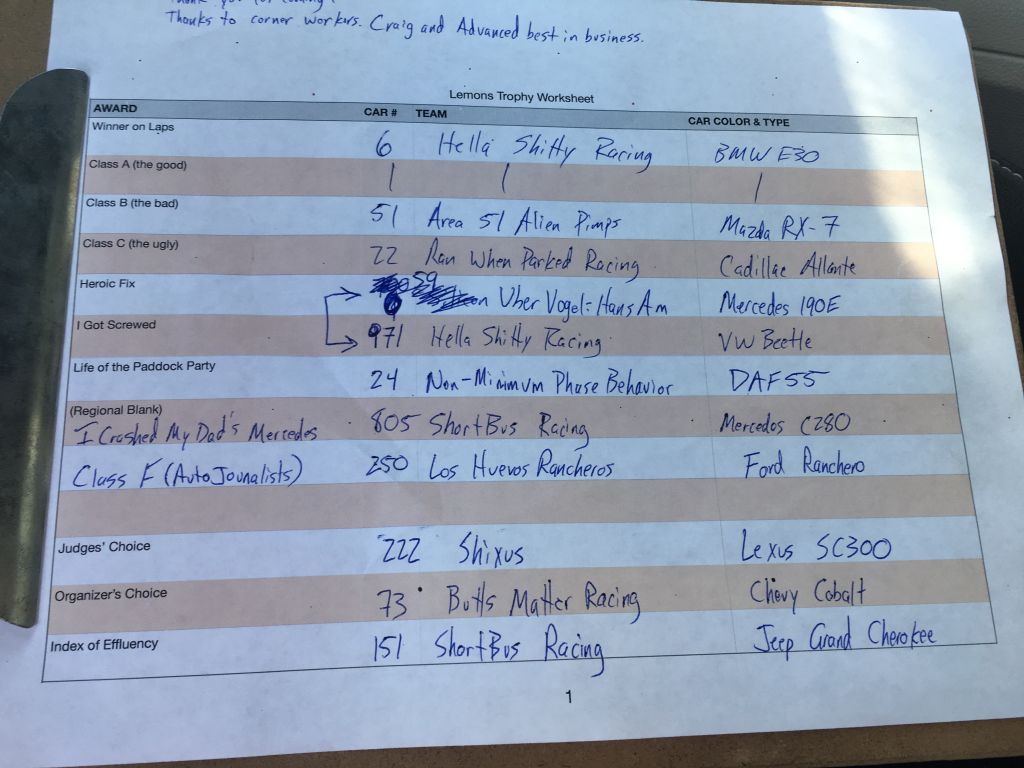 Thanks to corner workers. Craig and Advanced best in business.
Lemons Trophy Worksheet
AWARD CAR # TEAM CAR COLOR & TYPE
Winner on Laps 6 Hella Shitty Racing BMW E30
Class A (the good) | | |
Class B (the bad) 51 Area 51 Alien Pimps Mazda RX-7
Class C (the ugly) 22 Ran When Parked Racing Cadillac Allante
Heroic Fix 059 Uber Vogel: Hans Am Mercedes 190E
I Got Screwed 971 Hella Shitty Racing VW Beetle
Life of the Paddock Party 24 Non-Minimum Phase Behavior DAF 55
(Regional Blank)
I Crashed My Dad's Mercedes 805 ShortBus Racing Mercedes C280
Class F (Auto Jounalists) 250 Los Huevos Rancheros Ford Ranchero
Judges' Choice 222 Shixus Lexus SC300
Organizer's Choice 73 Butts Matter Racing Chevy Cobalt
Index of Effluency 151 ShortBus Racing Jeep Grand Cherokee
1